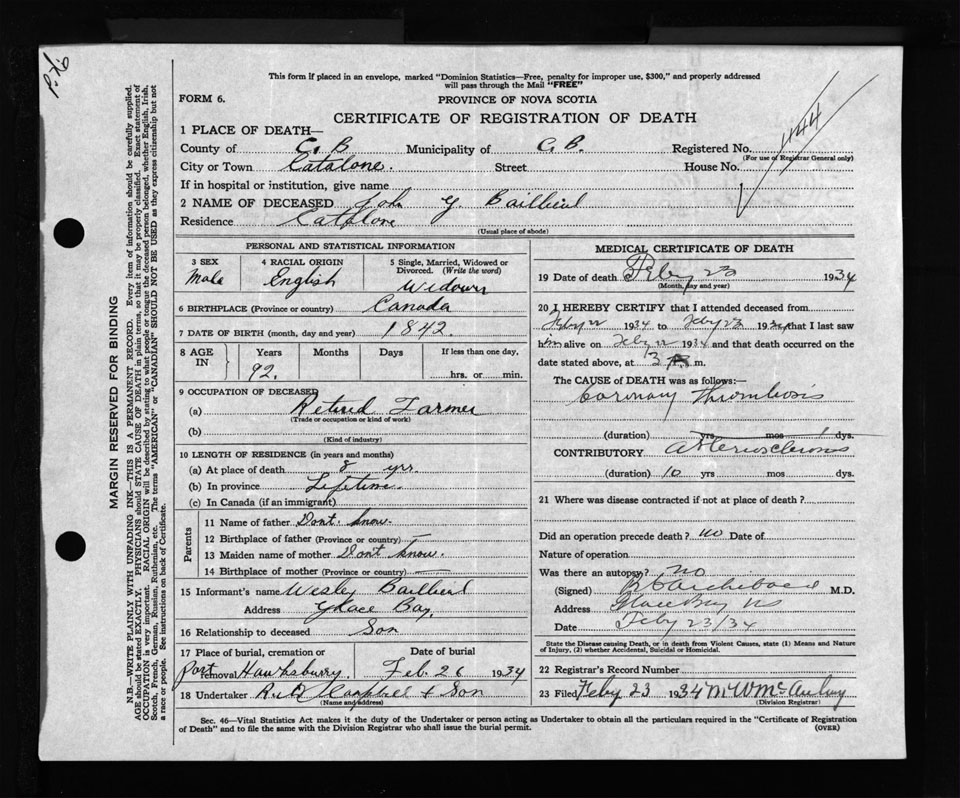 9 Rd
This form if placed in an envelope, marked "Dominion Statistics—Free, penalty for improper use, $300," and properly addressed
will pass through the Mail "FREE"
FORM 6.
PROVINCE OF NOVA SCOTIA
CERTIFICATE OF REGISTRATION OF DEATH
144
1 PLACE OF DEATH—
County of C. B. Municipality of C. B. Registered No.
(For use of Registrar General only)
City or Town Catalone. Street House No.
If in hospital or institution, give name
2 NAME OF DECEASED John Y. Bailheul
Residence Catalone
(Usual place of abode)
PERSONAL AND STATISTICAL INFORMATION
3 SEX Male
4 RACIAL ORIGIN English
5 Single, Married, Widowed or Divorced. (Write the word) Widower
6 BIRTHPLACE (Province or country) Canada
7 DATE OF BIRTH (month, day and year) 1842.
8 AGE IN Years Months Days If less than one day.
92. hrs. or min.
9 OCCUPATION OF DECEASED
(a) Retired Farmer
(Trade or occupation or kind of work)
(b)
(Kind of industry)
10 LENGTH OF RESIDENCE (in years and months)
(a) At place of death 8 yrs.
(b) In province Lifetime.
(c) In Canada (if an immigrant)
Parents
11 Name of father Dont know.
12 Birthplace of father (Province or country) —
13 Maiden name of mother Dont know.
14 Birthplace of mother (Province or country) —
15 Informant's name Wesley Bailheul
Address Glace Bay.
16 Relationship to deceased Son
17 Place of burial, cremation or removal Date of burial
Port Hawksburry. Feb. 26 1934
18 Undertaker Campbell + Son
(Name and address)
MEDICAL CERTIFICATE OF DEATH
19 Date of death Feby 23 1934
(Month, day and year)
20 I HEREBY CERTIFY that I attended deceased from
Feby 22 1934 to Feby 23 1934, that I last saw
him alive on Feby 22 1934 and that death occurred on the
date stated above, at 3 m.
The CAUSE of DEATH was as follows:—
Coronary Thrombosis
(duration) yrs mos 1 dys.
CONTRIBUTORY Arteriosclerosis
(duration) 10 yrs mos dys.
21 Where was disease contracted if not at place of death?
Did an operation precede death? no Date of
Nature of operation
Was there an autopsy? no
(Signed) Archibald M.D.
Address Glace Bay NS
Date Feby 23/34
State the Disease causing Death, or in death from Violent Causes, state (1) Means and Nature
of Injury, (2) whether Accidental, Suicidal or Homicidal.
22 Registrar's Record Number
23 Filed Feby 23 1934 M W McAulay
(Division Registrar)
Sec. 46—Vital Statistics Act makes it the duty of the Undertaker or person acting as Undertaker to obtain all the particulars required in the "Certificate of Registration
of Death" and to file the same with the Division Registrar who shall issue the burial permit. (OVER)
MARGIN RESERVED FOR BINDING
N.B.—WRITE PLAINLY WITH UNFADING INK—THIS IS A PERMANENT RECORD. Every item of information should be carefully supplied.
AGE should be stated EXACTLY. PHYSICIANS should STATE CAUSE OF DEATH in plain terms, so that it may be properly classified. Exact statement of
OCCUPATION is very important. RACIAL ORIGIN will be described by stating to what people or tongue the deceased person belonged, whether English, Irish,
Scotch, French, German, Russian, Ruthenian, etc. The terms "AMERICAN" or "CANADIAN" SHOULD NOT BE USED as they express citizenship but not
a race or people. See instructions on back of Certificate.